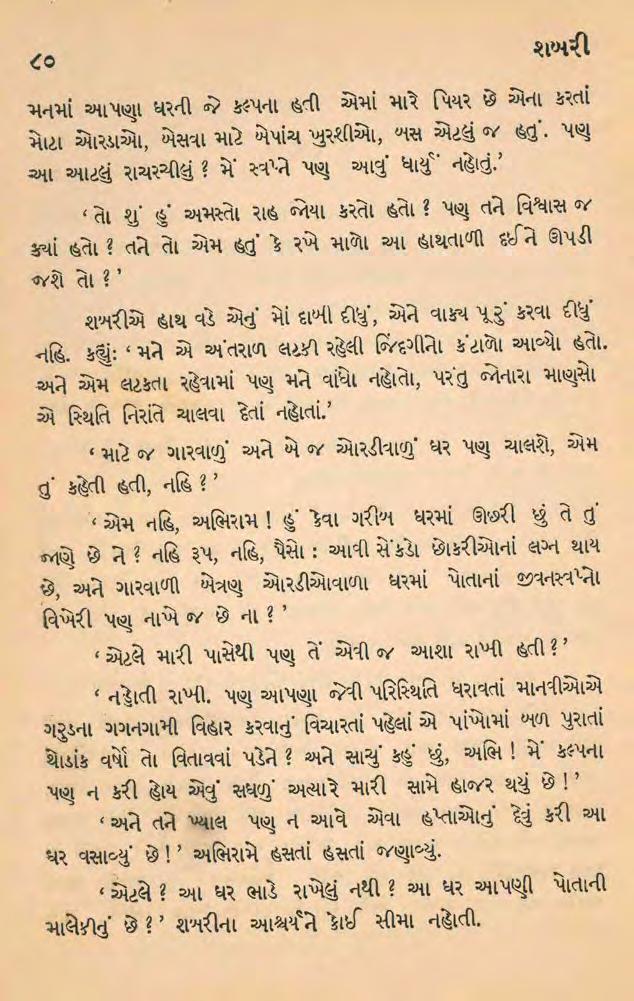 ૮૦
શબરી
મનમાં આપણા ઘરની જે કલ્પના હતી એમાં મારે પિયર છે એના કરતાં
મોટા ઓરડાઓ, બેસવા માટે બેપાંચ ખુરશીઓ, બસ એટલું જ હતું. પણ
આ આટલું રાચરચીલું ? મેં સ્વપ્ને પણ આવું ધાર્યું નહોતું.’
‘ તો શું હું અમસ્તો રાહ જોયા કરતો હતો ? પણ તને વિશ્વાસ જ
ક્યાં હતો ? તને તો એમ હતું કે રખે માળો આ હાથતાળી દઈને ઊપડી
જશે તો ? ’
શબરીએ હાથ વડે એનું મોં દાબી દીધું, એને વાક્ય પૂરું કરવા દીધું
નહિ. કહ્યું: ‘ મને એ અંતરાળ લટકી રહેલી જિંદગીનો કંટાળો આવ્યો હતો.
અને એમ લટકતા રહેવામાં પણ મને વાંધો નહોતો, પરંતુ જોનારા માણસો
એ સ્થિતિ નિરાંતે ચાલવા દેતાં નહોતાં.’
‘ માટે જ ગારવાળું અને બે જ ઓરડીવાળું ઘર પણ ચાલશે, એમ
તું કહેતી હતી, નહિ ? ’
‘ એમ નહિ, અભિરામ ! હું કેવા ગરીબ ઘરમાં ઊછરી છું તે તું
જાણે છે ને ? નહિ રૂપ, નહિ, પૈસો : આવી સેંકડો છોકરીઓનાં લગ્ન થાય
છે, અને ગારવાળી બેત્રણ ઓરડીઓવાળા ઘરમાં પોતાનાં જીવનસ્વપ્નો
વિખેરી પણ નાખે જ છે ના ? ’
‘ એટલે મારી પાસેથી પણ તેં એવી જ આશા રાખી હતી ? ’
‘ નહોતી રાખી. પણ આપણા જેવી પરિસ્થિતિ ધરાવતાં માનવીઓએ
ગરુડના ગગનગામી વિહાર કરવાનું વિચારતાં પહેલાં એ પાંખોમાં બળ પુરાતાં
થોડાંક વર્ષો તો વિતાવવાં પડેને ? અને સાચું કહું છું, અભિ ! મેં કલ્પના
પણ ન કરી હોય એવું સઘળું અત્યારે મારી સામે હાજર થયું છે ! ’
‘ અને તને ખ્યાલ પણ ન આવે એવા હપ્તાઓનું દેવું કરી આ
ઘર વસાવ્યું છે ! ’ અભિરામે હસતાં હસતાં જણાવ્યું.
‘ એટલે ? આ ઘર ભાડે રાખેલું નથી ? આ ઘર આપણી પોતાની
માલેકીનું છે ? ’ શબરીના આશ્ચર્યને કોઈ સીમા નહોતી.